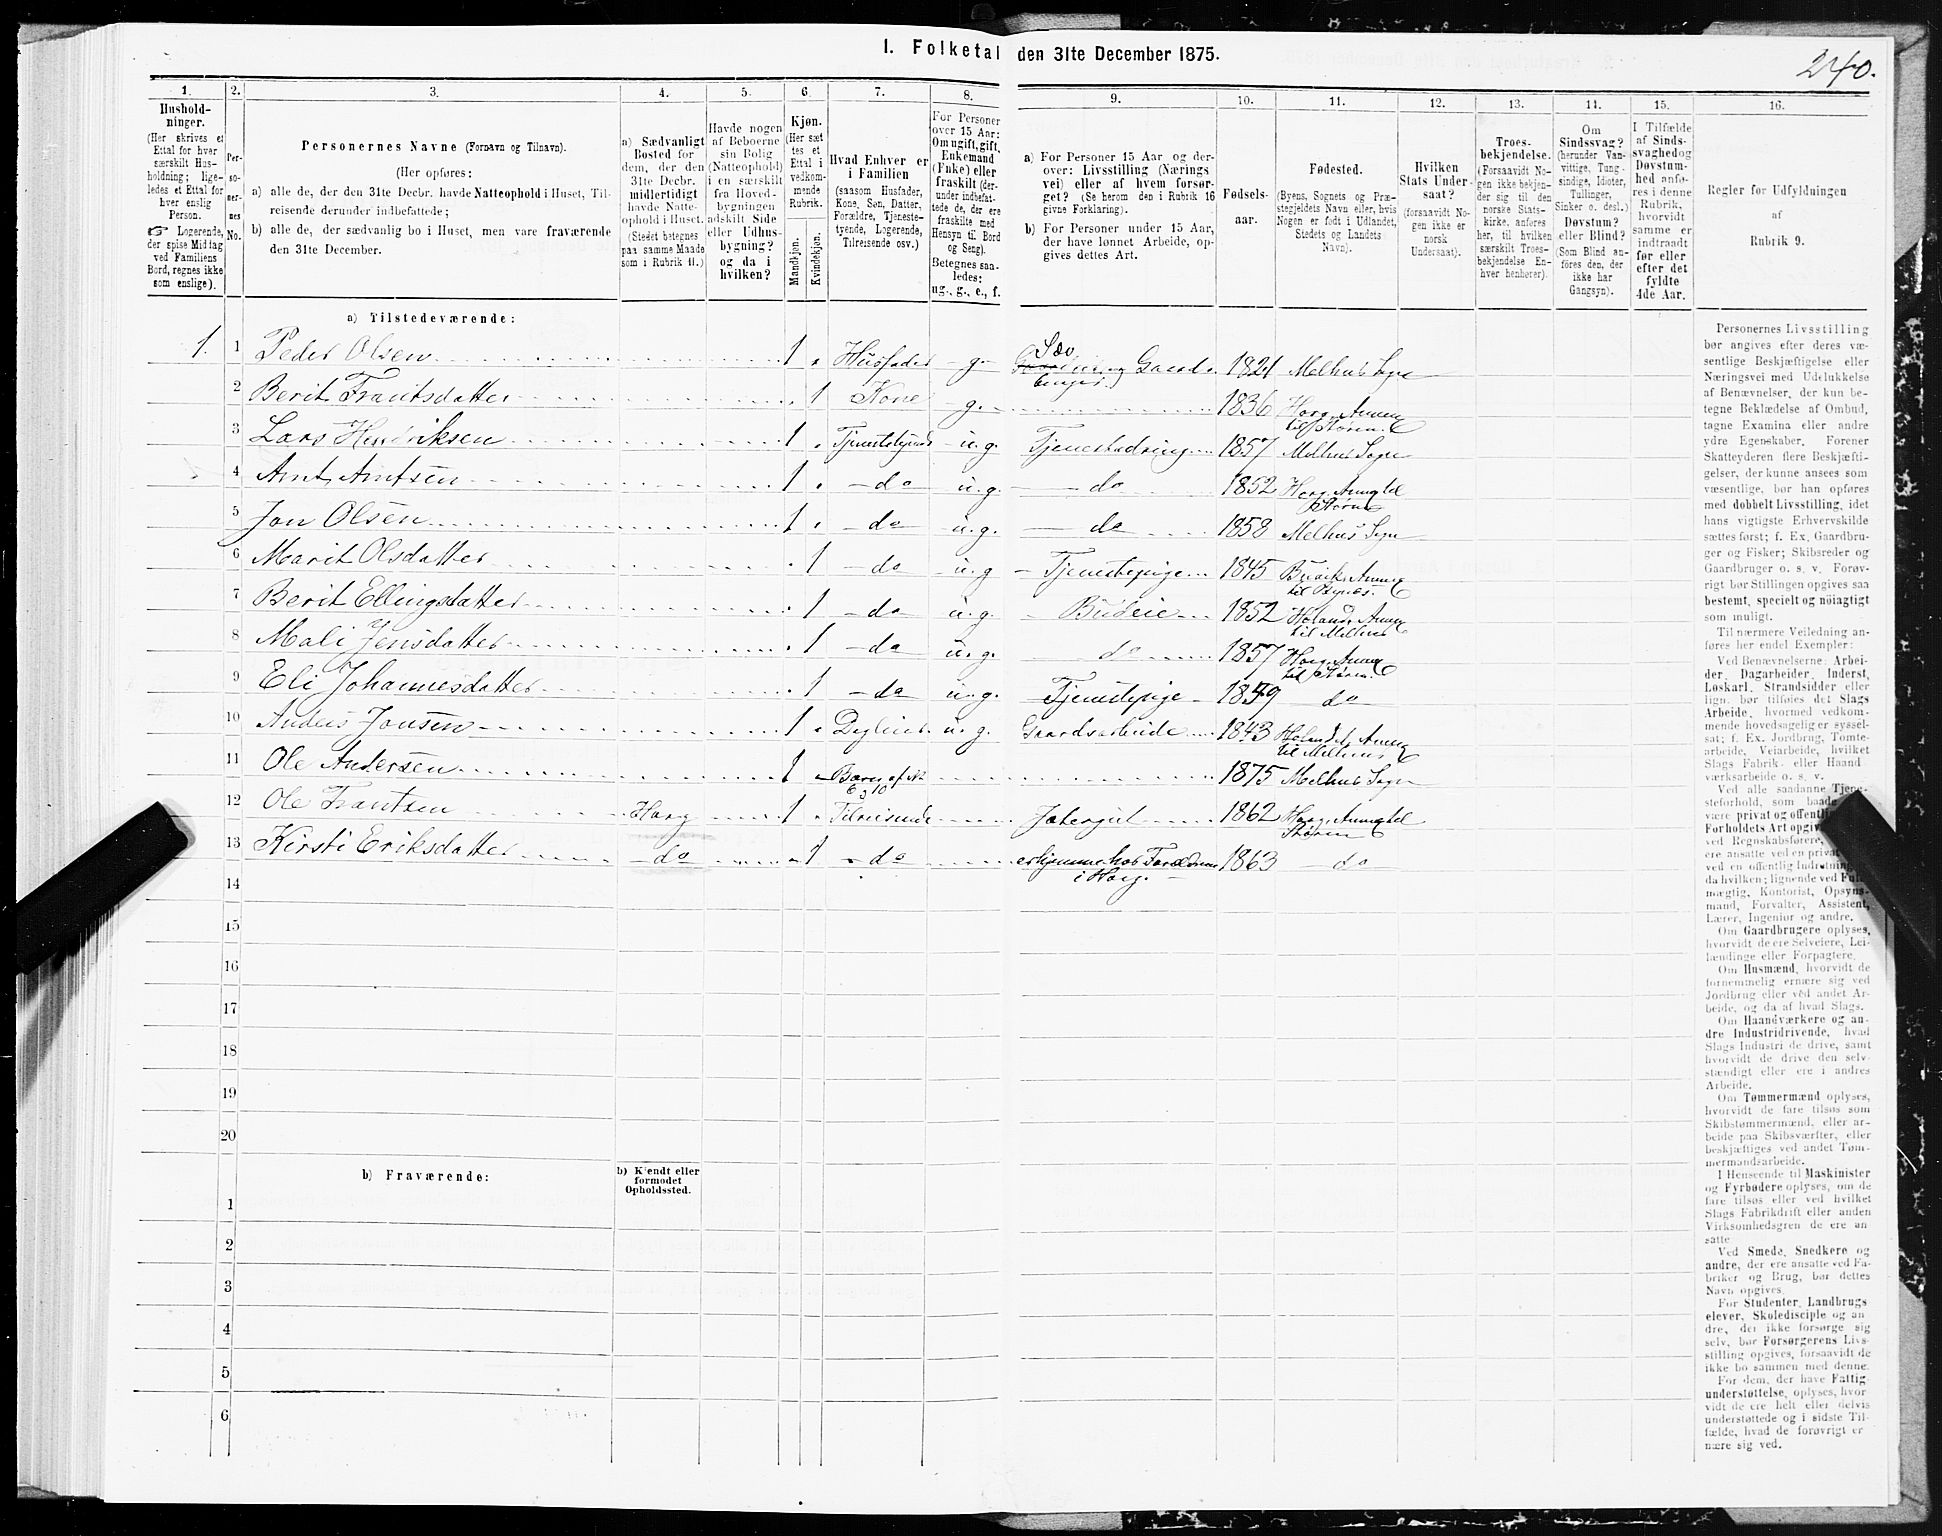 I. Folketal den 31te December 1875.
240.
1. 2. 3. 4. 5. 6. 7. 8. 9. 10. 11. 12. 13. 14. 15. 16.
Hushold-
ninger.
(Her skrives et
Ettal for hver
særskilt Hus-
holdning; lige-
ledes et Ettal for
hver enslig
Person.
☞ Logerende,
der spise Middag
ved Familiens
Bord, regnes ikke
som enslige).
Per-
so-
ner-
nes
No.
Personernes Navne (Fornavn og Tilnavn).
(Her opføres:
a) alle de, der den 31te Decbr. havde Natteophold i Huset, Til-
reisende derunder indbefattede;
b) alle de, der sædvanlig bo i Huset, men vare fraværende
den 31te December.
a) Sædvanligt
Bosted for
dem, der den
31te Decbr.
midlertidigt
havde Natte-
ophold i Huset.
(Stedet betegnes
paa samme Maade
som i Rubrik 11.)
Havde nogen
af Beboerne
sin Bolig
(Natteophold)
i en særskilt
fra Hoved-
bygningen
adskilt Side
eller Udhus-
bygning?
og da i
hvilken?
Kjøn.
(Her sæt
tes et
Ettal i
vedkom-
mende
Rubrik.
Mandkjøn.
Kvindekjøn.
Hvad Enhver er
i Familien
(saasom Husfader,
Kone, Søn, Datter,
Forældre, Tjeneste-
tyende, Logerende,
Tilreisende osv.)
For Personer
over 15 Aar:
Om ugift, gift,
Enkemand
(Enke) eller
fraskilt (der-
under indbefat-
tede de, der ere
fraskilte med
Hensyn til Bord
og Seng).
Betegnes saa-
ledes:
ug., g., e., f.
a) For Personer 15 Aar og der-
over: Livsstilling (Nærings
vei) eller af hvem forsør-
get? (Se herom den i Rubrik 16
givne Forklaring).
b) For Personer under 15 Aar,
der have lønnet Arbeide, op-
gives dettes Art.
Fødsels-
aar.
Fødested.
(Byens, Sognets og Præ-
stegjeldets Navn eller, hvis
Nogen er født i Udlandet,
Stedets og Landets
Navn).
Hvilken
Stats Under-
saat?
(forsaavidt No-
gen ikke er
norsk
Undersaat).
Troes-
bekjendelse.
(Forsaavidt No-
gen ikke bekjen-
der sig til den
norske Stats-
kirke, anføres
her, til hvilken
særskilt Troes-
bekjendelse En-
hver henhører).
Om
Sindssvag?
(herunder Van-
vittige, Tung-
sindige, Idioter,
Tullinger,
Sinker o. desl.)
Døvstum?
eller Blind?
(Som Blind an-
føres den, der
ikke har
Gangsyn).
I Tilfælde
af Sinds-
svaghed og
Døvstum-
hed anfø-
res i denne
Rubrik,
hvorvidt
samme er
indtraadt
før eller
efter det
fyldte
4de Aar.
Regler for Udfyldningen
af
Rubrik 9.
a) Tilstedeværende:
1. 1 Peder Olsen 1 Husfader g. Gaard 1821 Melhus Sogn
2 Berit Frantsdatter 1 Kone g. 1836 Horg, Annex til Støren
3 Lars Hendriksen 1 u. g. 1857 Melhus Sogn
4 Arnt Arntsen 1 do u. g. do 1852 Horg
5 Jon Olsen 1 do u. g. do 1858 Melhus Sogn
6 Marit Olsdatter 1 do u. g Tjenestepige 1845
7 Berit Ellingsdatter 1 do u. g. Budeie 1852 Annex til Melhus
8 Mali Jensdatter 1 do u. g. do 1857 Horg, Annex til Støren
9 Eli Johannesdatter 1 do u. g. Tjenestepige 1859 do
10 Anders Jonsen 1 u. g. Gaardsarbeide 1843 Annex til Melhus
11 Ole Andersen 1 Barn af No 10 1875 Melhus Sogn
12 Ole Frantsen Horg 1 Tilreisende 1862 Horg, Annex til Støren
13 Kirsti Eriksdatter do 1 do hjemme hos Forældrene i Horg. 1863 do
14
15
16
17
18
19
20
b) Fraværende:
b) Kjendt eller
formodet
Opholdssted.
1
2
3
4
5
6
Personernes Livsstilling
bør angives efter deres væ-
sentlige Beskjæftigelse eller
Næringsvei med Udelukkelse
af Benævnelser, der kun be-
tegne Beklædelse af Ombud,
tagne Examina eller andre
ydre Egenskaber. Forener
Skatteyderen flere Beskjæfti-
gelser, der kunne ansees som
væsentlige, bør han opføres
med dobbelt Livsstilling, idet
hans vigtigste Erhvervskilde
sættes først; f. Ex. Gaardbru-
ger og Fisker; Skibsreder og
Gaardbruger o. s. v. Forøv-
rigt bør Stillingen opgives saa
bestemt, specielt og nöiagtigt
som muligt.
Til nærmere Veiledning an-
føres her endel Exempler:
Ved Benævnelserne: Arbei-
der, Dagarbeider, Inderst,
Løskarl, Strandsidder eller
lign. bør tilføies det Slags
Arbeide, hvormed vedkom-
mende hovedsagelig er syssel-
sat; f. Ex. Jordbrug, Tømte-
arbeide, Veiarbeide, hvilket
Slags Fabrik- eller Haand
værksarbeide o. s. v.
Ved alle saadanne Tjene-
steforhold, som baade
være privat og offentl
Forholdets Art opgiv
ved Regnskabsførere,
ere ansatte ved en privat
ved en offentlig Indretning
da hvilken; lignende ved Fuld
mægtig, Kontorist, Opsyns-
mand, Forvalter, Assistent,
Lærer, Ingeniør og andre.
Om Gaardbrugere oplyses,
hvorvidt de ere Selveiere, Lei-
lændinge eller Forpagtere.
Om Husmænd, hvorvidt de
fornemmelig ernære sig ved
Jordbrug eller ved andet Ar-
beide, og da af hvad Slags.
Om Haandværkere og an-
dre Industridrivende, hvad
Slags Industri de drive, samt
hvorvidt de drive den selv-
stændigt eller ere i andres
Arbeide.
Om Tømmermænd oplyses,
hvorvidt de fare tilsøs som
Skibstømmermænd, eller ar-
beide paa Skibsværfter, eller
beskjæftiges ved andet Tøm-
mermandsarbeide.
I Henseende til Maskinister
og Fyrbødere oplyses, om de
fare tilsøs eller ved hvilket
Slags Fabrikdrift eller anden
Virksomhedsgren de ere an-
satte
Ved Smede, Snedkere og
andre, der ere ansatte ved Fa-
briker og Brug, bør dettes
Navn opgives.
For Studenter, Landbrugs
elever, Skoledisciple og an-
dre, der ikke forsørge sig
selv, bør Forsørgerens Livs-
stilling opgives, forsaavidt de
ikke bo sammen med denne.
For dem, der have Fattig-
understøttelse, oplyses, hvor
vidt de ere helt eller delvis
understøttede og i sidste Til-
fælde, hvad de forøvrigt er
nære sig ved.